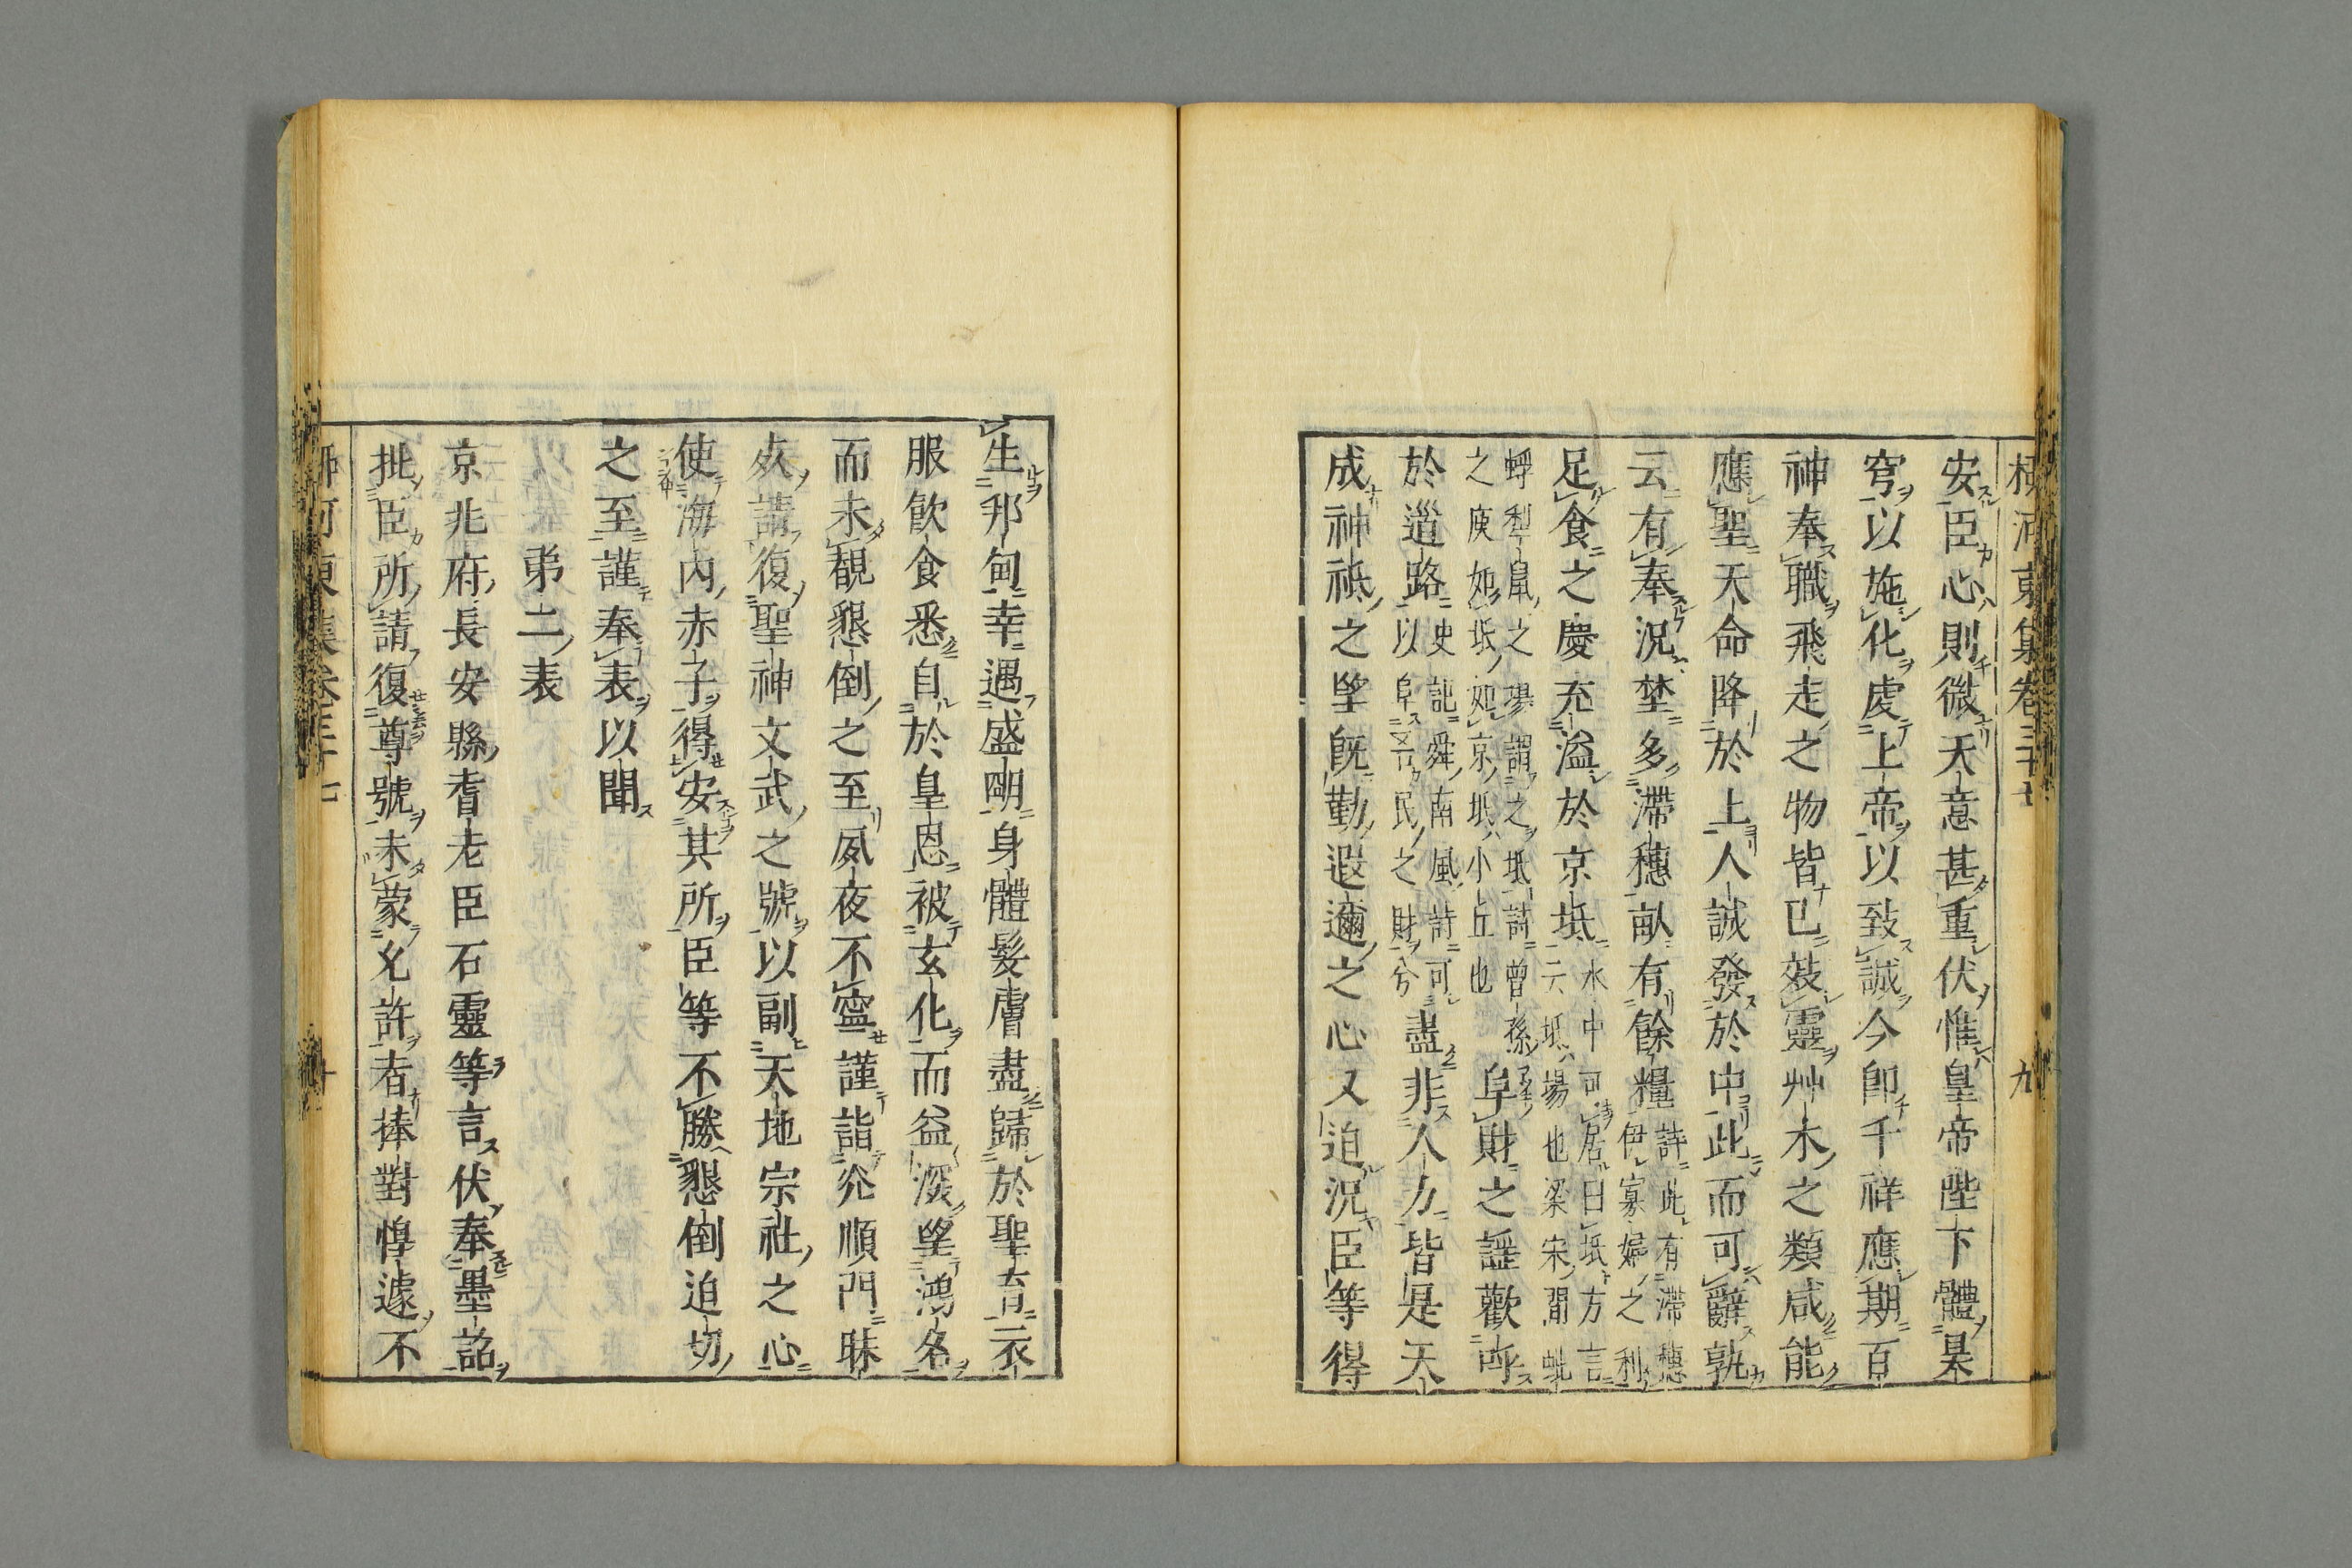 柳河東集卷三十七 九
安臣心則微天意甚重伏惟皇帝陛下體昊
穹以施化虔上帝以致誠今卽千祥應期百
神奉職飛走之物皆已效靈艸木之類咸能
應聖天命降於上人誠發於中此而可辭孰
云有奉況埜多滯穗畝有餘糧
詩此有滯穗
伊寡婦之利
足食之慶充溢於京坻
水中可居曰坻方言
云坻塲也梁宋間蚍
蜉犁鼠之塲謂之坻詩曾孫
之庾如坻如京坻小丘也
阜財之謡歡呼
於道路
史記舜南風詩可
以阜吾民之財兮
盡非人力皆是天
成神祇之望旣勤遐邇之心又迫況臣等得
生邦甸幸遇盛明身體髮膚盡歸於聖育衣
服飲食悉自於皇恩被玄化而益深望鴻名
而未覩懇倒之至夙夜不寧謹詣光順門昧
死請復聖神文武之號以副天地宗社之心
使海內赤子得安其所臣等不勝懇倒迫切
之至謹奉表以聞
第二表
京兆府長安縣耆老臣石靈等言伏奉墨詔
批臣所請復尊號未蒙允許者捧對惶遽不
柳河東集卷三十七 十